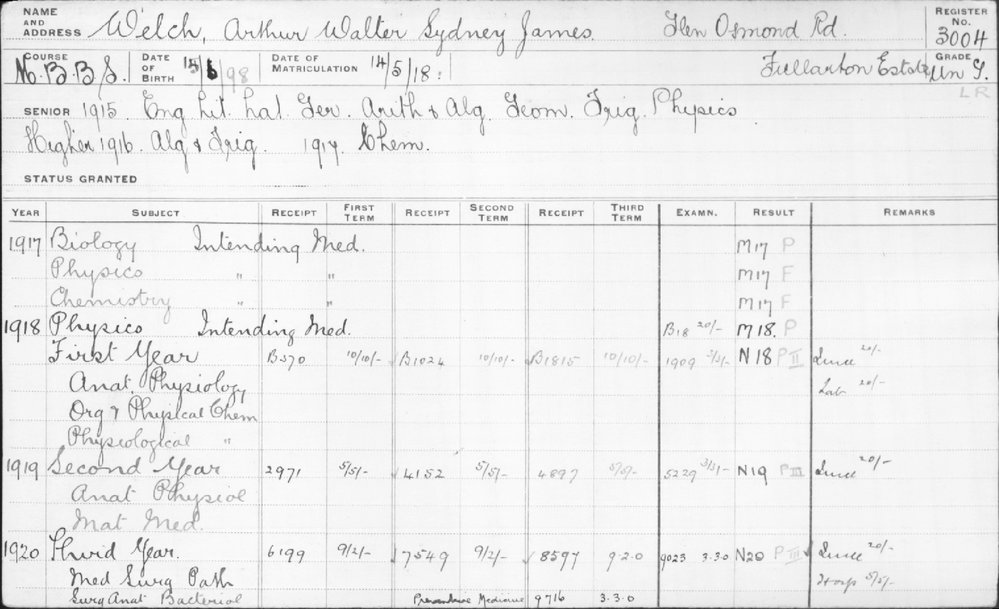 NAME AND ADDRESS Welch, Arthur Walter Sydney James. Glen Osmond Rd. REGISTER No. 3004
COURSE M.B.B.S. DATE OF BIRTH 15/6/98 DATE OF MATRICULATION 14/5/18: Fullarton Estate GRADE Un G.
LR
SENIOR 1915. Eng Lit. Lat. Ger. Arith & Alg. Geom. Trig. Physics
Higher 1916. Alg & Trig. 1917. Chem.
STATUS GRANTED
YEAR SUBJECT RECEIPT FIRST TERM RECEIPT SECOND TERM RECEIPT THIRD TERM EXAMN. RESULT REMARKS
1917 Biology Intending Med. M17 P
Physics " " M17 F
Chemistry " " M17 F
1918 Physics Intending Med. B18 20/- M18. P
First Year B570 10/10/- B1024 10/10/- B1815 10/10/- 1909 3/3/- N18 P II 20/-
Anat. Physiology Lab 20/-
Org & Physical Chem
Physiological "
1919 Second Year 2971 5/5/- 4152 5/5/- 4897 5/5/- 5229 3/3/- N19 P III 20/-
Anat Physiol
Mat Med.
1920 Third Year. 6199 9/2/- 7549 9/2/- 8597 9.2.0 9023 3.3.0 N20 P III 20/-
Med Surg Path Hosp 5/5/-
Surg Anat Bacteriol Preventive Medicine 9716 3.3.0